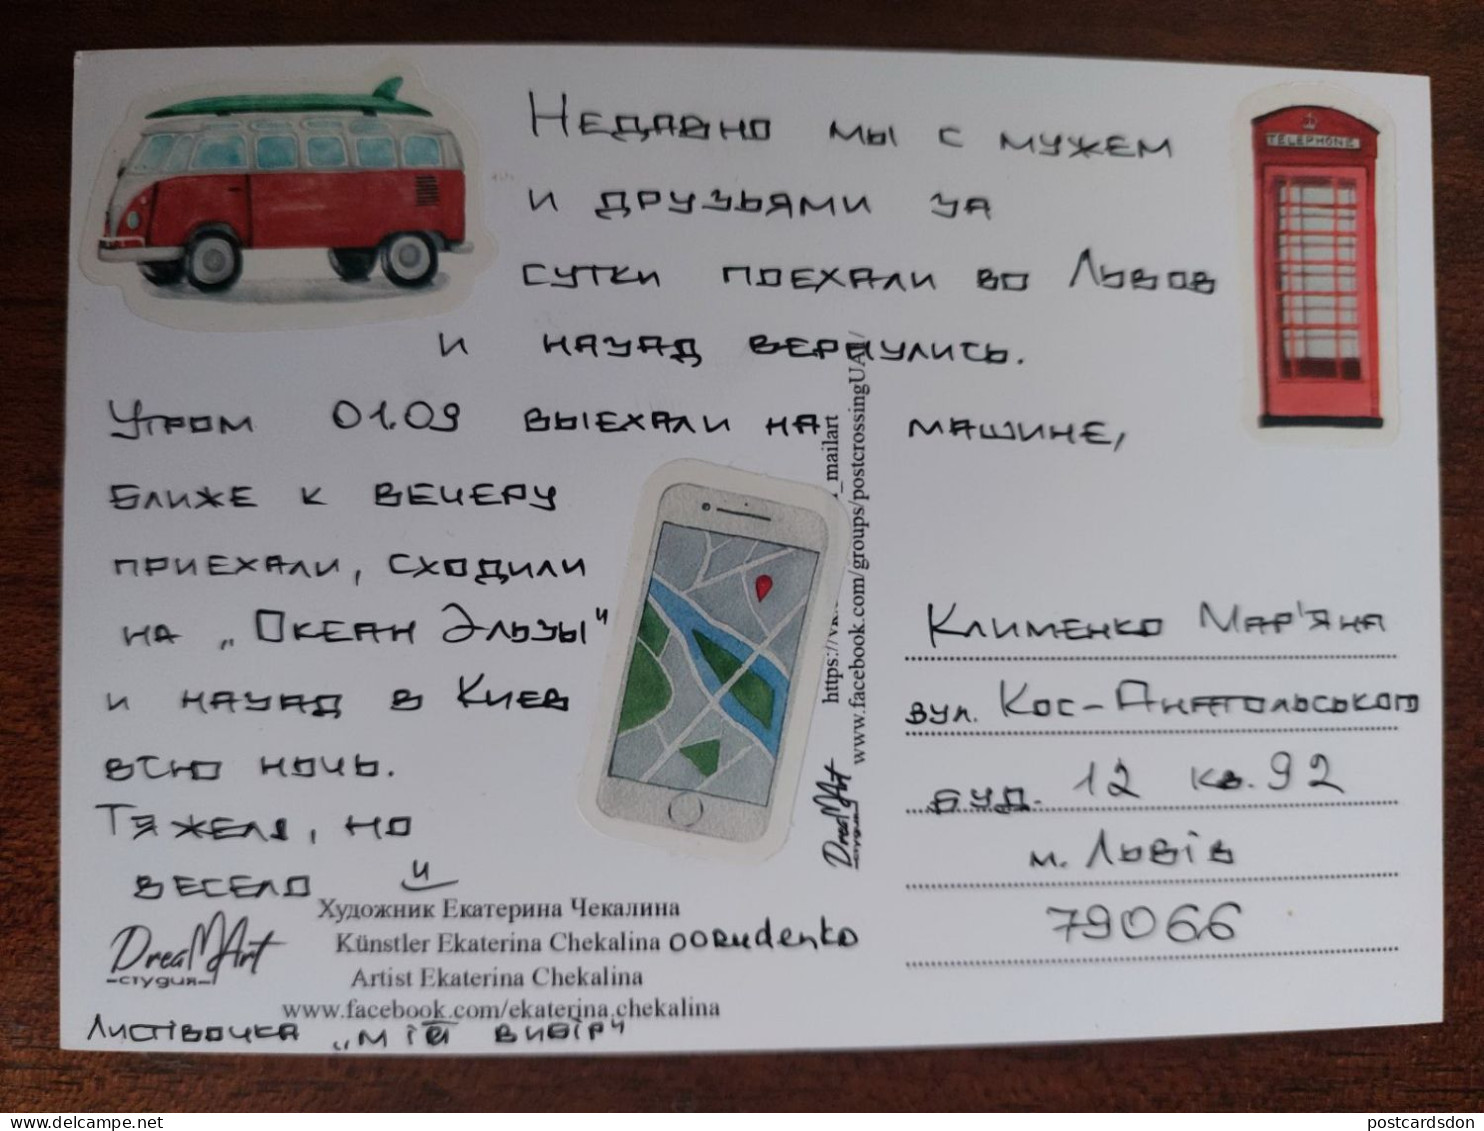 TELEPHONE
Недавно мы с мужем
и друзьями за
сутки поехали во Львов
и назад вернулись.
Утром 01.09 выехали на машине,
ближе к вечеру
приехали, сходили
на „Океан Эльзы"
и назад в Киев
всю ночь.
Тяжело, но
весело
Художник Екатерина Чекалина
Künstler Ekaterina Chekalina oorudenko
Artist Ekaterina Chekalina
www.facebook.com/ekaterina.chekalina
DreaMArt
студия
Листівочка „мій вибір"
_mailart
www.facebook.com/groups/postcrossingUA/
DreaMArt
студия
Клименко Мар'яна
вул. Кос-Анатольського
буд. 12 кв. 92
м. Львів
79066
www.delcampe.net
postcardsdon